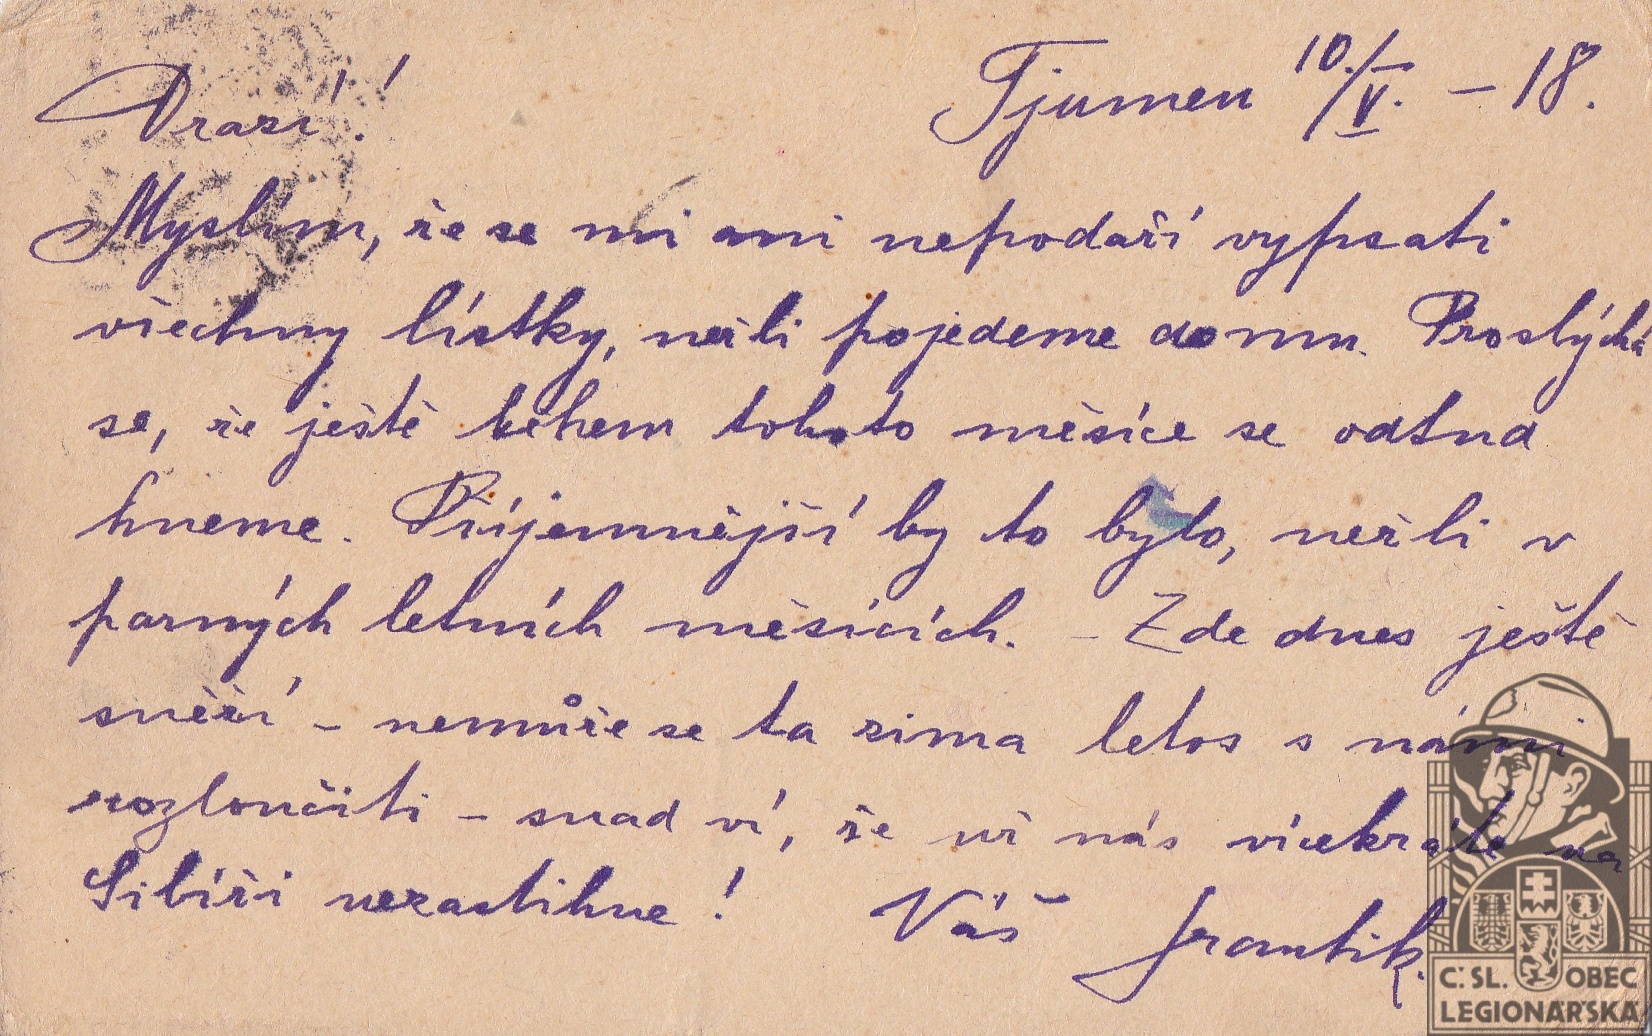 Drazí!
Tjumen 10./V. – 18.
Myslím, že se mi ani nepodaří vypsati
všechny lístky, nežli pojedeme domu. Proslýchá
se, že ještě během tohoto měsíce se odtud
hneme. Příjemnější by to bylo, nežli v
parných letních měsících. – Zde dnes ještě
sněží – nemůže se ta zima letos s námi
rozloučiti – snad ví, že už nás vícekráte na
Sibíři nezastihne! Váš Frantík.
Č. SL. OBEC
LEGIONÁŘSKÁ